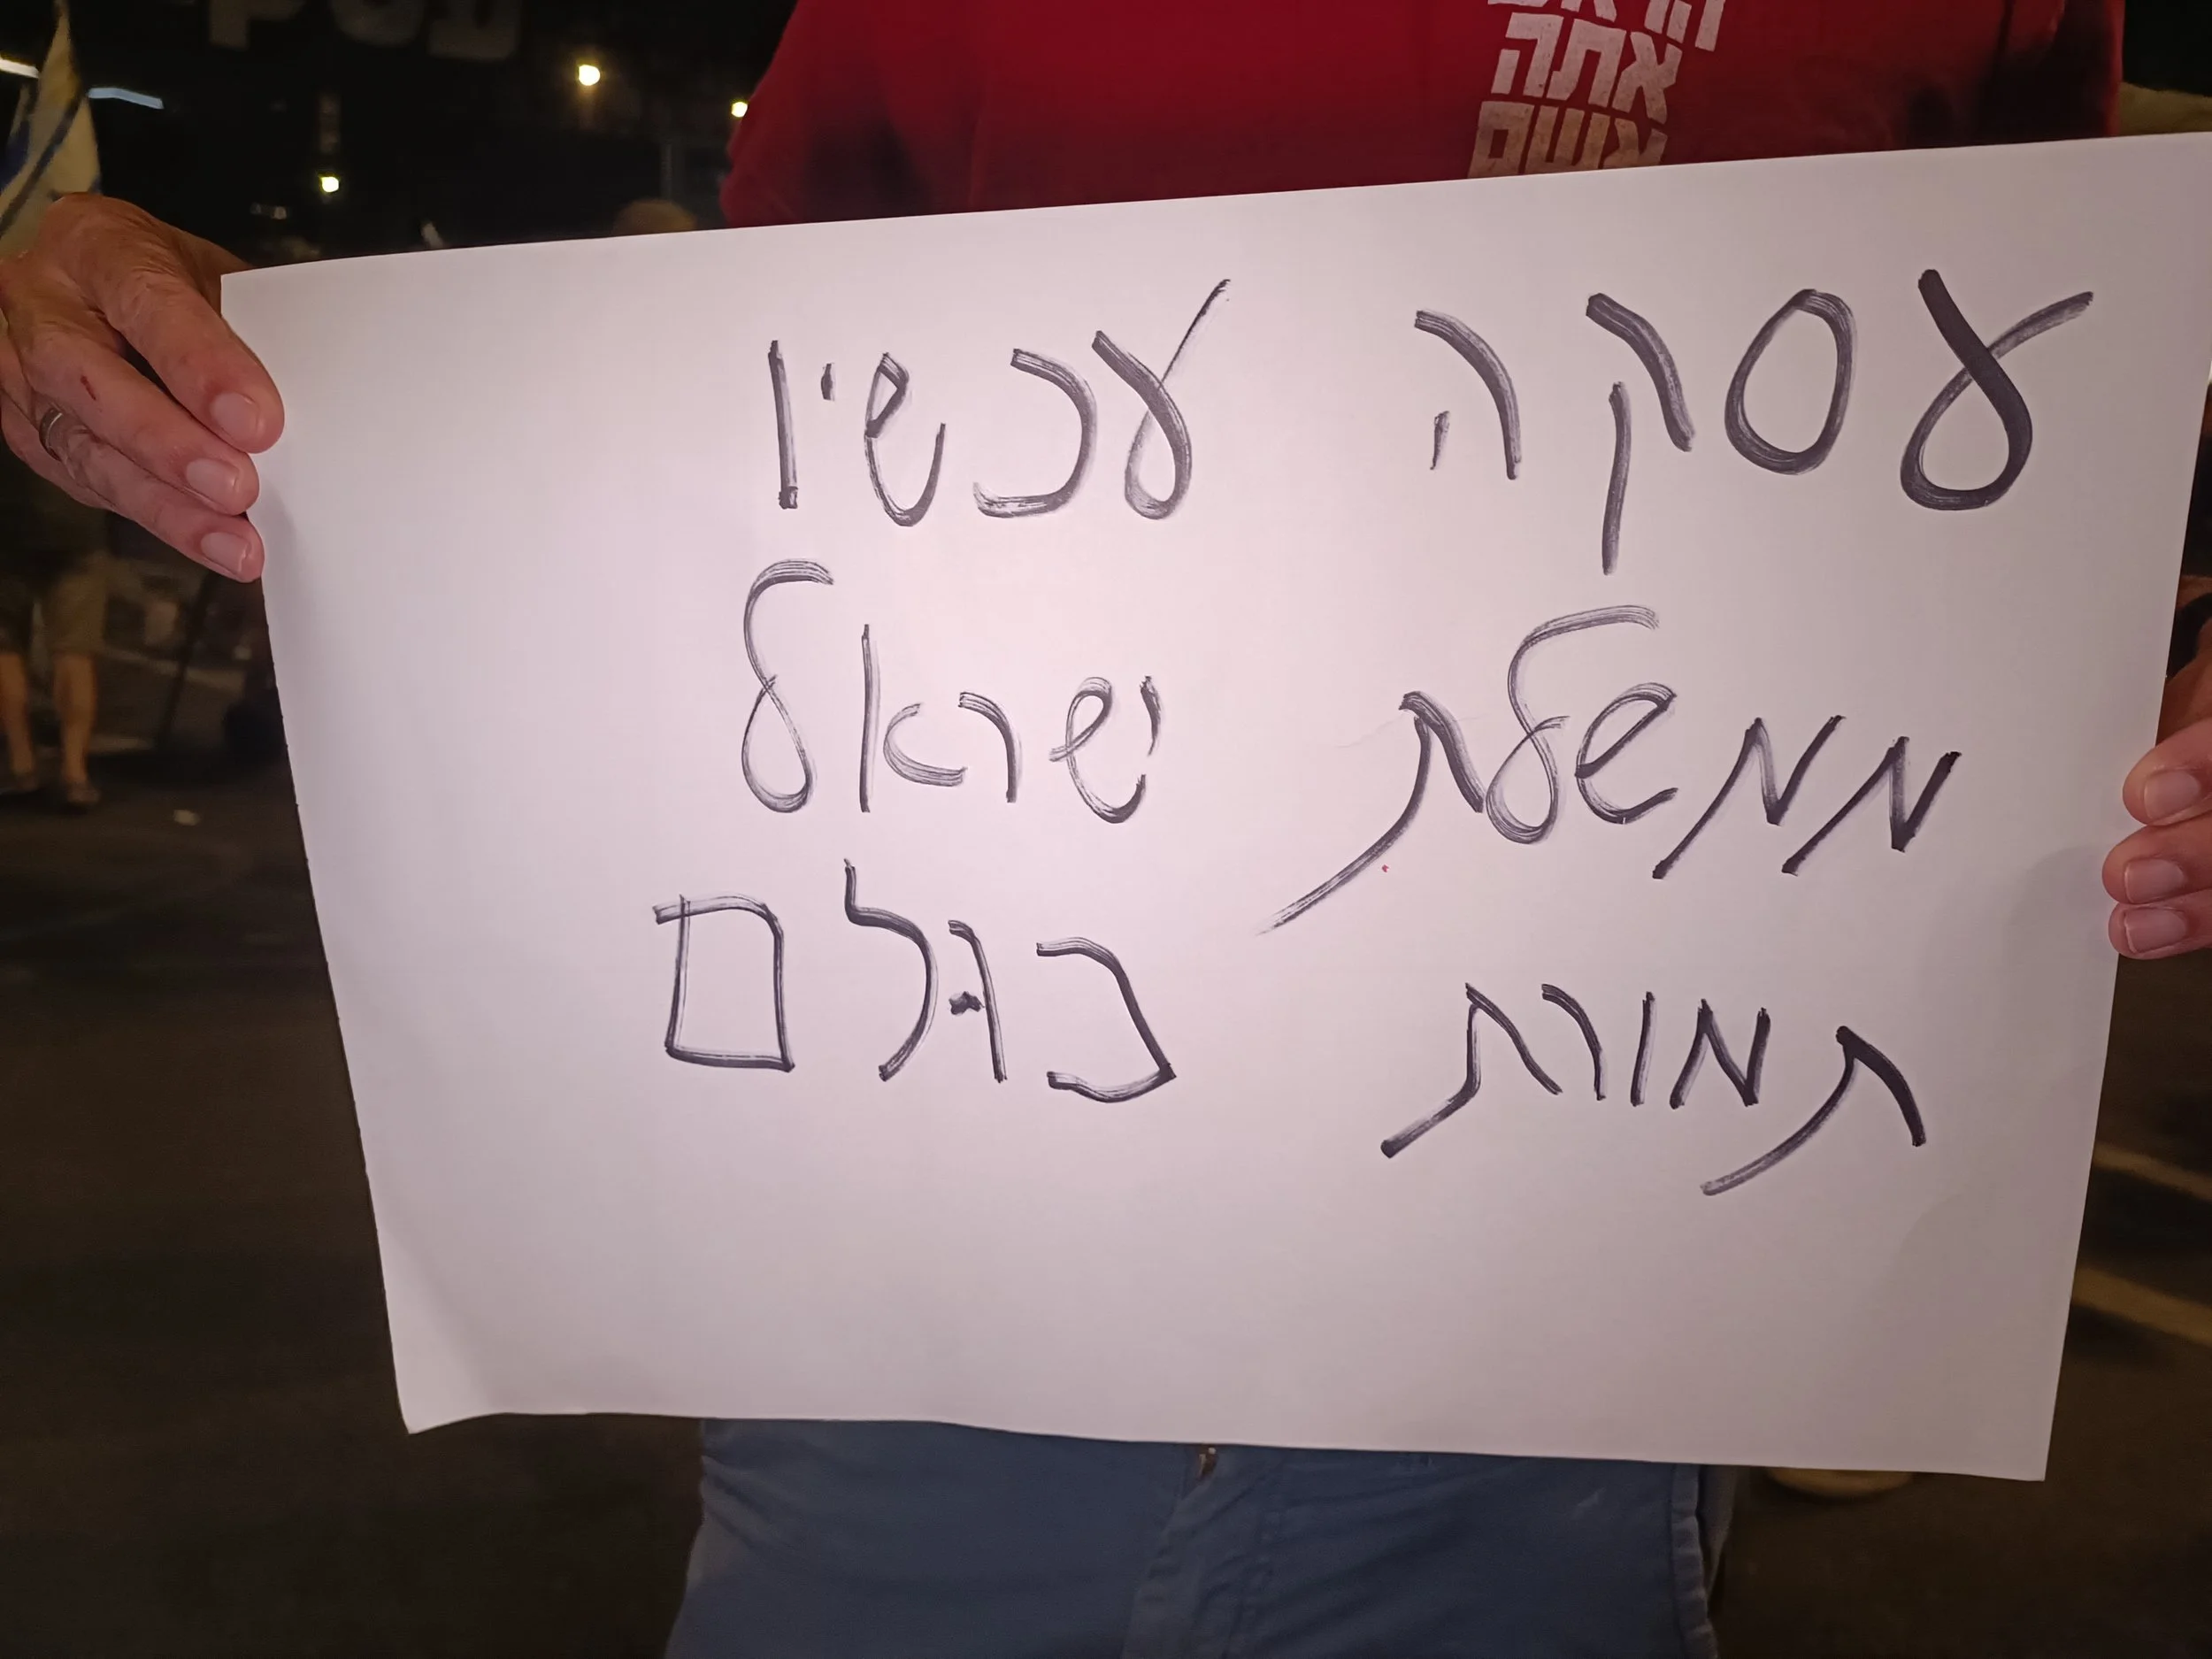 אתה
אשם
עסקה עכשיו
ממשלת ישראל
תמורת כולם